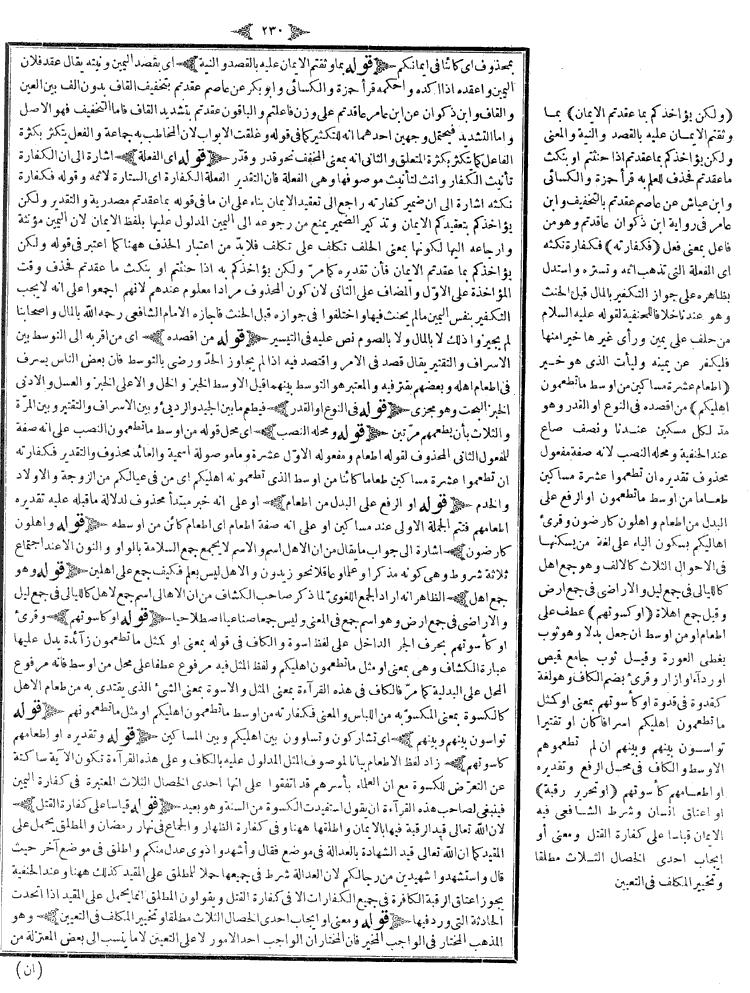 ٢٣٠
بمحذوف اى كائنا فى ايمانكم قوله بما وثقتم الايمان عليه بالقصد والنية اى بقصد اليمين ونيته يقال عقد فلان
اليمين واعقده اذا اكده واحكمه قرأ حمزة والكسائى وابو بكر عن عاصم عقدتم بتخفيف القاف بدون الف بين العين
والقاف وابن ذكوان عن ابن عامر عاقدتم على وزن فاعلتم والباقون عقدتم بتشديد القاف فاما التخفيف فهو الاصل
واما التشديد فيحتمل وجهين احدهما انه للتكثير كما فى قوله وغلقت الابواب لان المخاطب به جماعة والفعل يتكثر بكثرة
الفاعل كما يتكثر بكثرة المتعلق والثانى انه بمعنى المخفف نحو قدر وقدّر قوله اى الفعلة اشارة الى ان الكفارة
تأنيث الكفار وانث لتأنيث موصوفها وهى الفعلة فان التقدير الفعلة الكفارة اى الستارة لاثمه وقوله فكفارة
نكثه اشارة الى ان ضمير كفارته راجع الى تعقيد الايمان بناء على ان ما فى قوله بما عقدتم مصدرية والتقدير ولكن
يؤاخذكم بتعقيدكم الايمان وتذكير الضمير يمنع من رجوعه الى اليمين المدلول عليها بلفظ الايمان لان اليمين مؤنثة
وارجاعه اليها لكونها بمعنى الحلف تكلف على تكلف فلابد من اعتبار الحذف ههنا كما اعتبر فى قوله ولكن
يؤاخذكم بما عقدتم الايمان فأن تقديره كما مرّ ولكن يؤاخذكم به اذا حنثتم او بنكث ما عقدتم فحذف وقت
المؤاخذة على الاوّل والمضاف على الثانى لان كون المحذوف مرادا معلوم عندهم لانهم اجمعوا على انه لا يجب
التكفير بنفس اليمين مالم يحنث فيها واختلفوا فى جوازه قبل الحنث فاجازه الامام الشافعى رحمه الله بالمال واصحابنا
لم يجيزوا ذلك لا بالمال ولا بالصوم نص عليه فى التيسير قوله من اقصده اى من اقربه الى التوسط بين
الاسراف والتقتير يقال قصد فى الامر واقتصد فيه اذا لم يجاوز الحدّ ورضى بالتوسط فان بعض الناس يسرف
فى اطعام اهله وبعضهم يقتر فيه والمعتبر هو التوسط بينهما قيل الاوسط الخبز والخل والاعلى الخبز والعسل والادنى
الخبز البحت وهو مجزى قوله فى النوع او القدر فيطعم ما بين الجيد والردئ وبين الاسراف والتقتير وبين المرّة
والثلاث بأن يطعمهم مرّتين قوله ومحله النصب اى محل قوله من اوسط ما تطعمون النصب على انه صفة
للمفعول الثانى المحذوف لقوله اطعام ومفعوله الاوّل عشرة وما موصولة اسمية والعائد محذوف والتقدير فكفارته
ان تطعموا عشرة مساكين طعاما كائنا من اوسط الذى تطعمونه اهليكم اى من فى عيالكم من الزوجة والاولاد
والخدم قوله او الرفع على البدل من اطعام او على انه خبر مبتدأ محذوف لدلالة ما قبله عليه تقديره
اطعامهم فتتم الجملة الاولى عند مساكين او على انه صفة اطعام اى اطعام كائن من اوسطه قوله واهلون
كارضون اشارة الى جواب ما يقال من ان الاهل اسم والاسم لا يجمع جمع السلامة بالواو والنون الا عند اجتماع
ثلاثة شروط وهى كونه مذكرا وعلما وعاقلا نحو زيدون والاهل ليس بعلم فكيف جمع على اهلين قوله وهو
جمع اهل الظاهر انه اراد الجمع اللغوىّ لما ذكر صاحب الكشاف من ان الاهالى اسم جمع لاهل كالليالى فى جمع ليل
والاراضى فى جمع ارض وهو اسم جمع فى المعنى وليس جمعا صناعيا اصطلاحيا قوله او كاسوتهم وقرئ
او كأسوتهم بحرف الجر الداخل على لفظ اسوة والكاف فى قوله بمعنى او كمثل ما تطعمون زآئدة يدل عليها
عبارة الكشاف وهى بمعنى او مثل ما تطعمون اهليكم ولفظ المثل فيه مرفوع عطفا على محل من اوسط فانه مرفوع
المحل على البدلية كما مرّ فالكاف فى هذه القرآءة بمعنى المثل والاسوة بمعنى الشئ الذى يقتدى به من طعام الاهل
كالكسوة بمعنى المكسوّ به من اللباس والمعنى فكفارته من اوسط ما تطعمون اهليكم او مثل ما تطعمونهم قوله
تواسون بينهم وبينهم اى تشاركون وتساوون بين اهليكم وبين المساكين قوله وتقديره او اطعامهم
كاسوتهم زاد لفظ الاطعام بيانا لموصوف المثل المدلول عليه بالكاف وعلى هذه القرآءة تكون الآية ساكتة
عن التعرّض للكسوة مع ان العلماء بأسرهم قد اتفقوا على انها احدى الخصال الثلاث المعتبرة فى كفارة اليمين
فينبغى لصاحب هذه القرآءة ان يقول استفيدت الكسوة من السنة وهو بعيد قوله قياسا على كفارة القتل
لان الله تعالى قيد الرقبة فيها بالايمان واطلقها ههنا وفى كفارة الظهار والجماع فى نهار رمضان والمطلق يحمل على
المقيد كما ان الله تعالى قيد الشهادة بالعدالة فى موضع فقال وأشهدوا ذوى عدل منكم واطلق فى موضع آخر حيث
قال واستشهدوا شهيدين من رجالكم لان العدالة شرط فى جميعها حملا للمطلق على المقيد كذلك ههنا وعند الحنفية
يجوز اعتاق الرقبة الكافرة فى جميع الكفارات الا فى كفارة القتل ويقولون المطلق انما يحمل على المقيد اذا اتحدت
الحادثة التى ورد فيها قوله ومعنى او ايجاب احدى الخصال الثلاث مطلقا وتخيير المكلف فى التعيين وهو
المذهب المختار فى الواجب المخير فان المختار ان الواجب احد الامور لا على التعيين لا ما ينسب الى بعض المعتزلة من
(ولكن يؤاخذكم بما عقدتم الايمان) بما
وثقتم الايمان عليه بالقصد والنية والمعنى
ولكن يؤاخذكم بما عقدتم اذا حنثتم او بنكث
ما عقدتم فحذف للعلم به قرأ حمزة والكسائى
وابن عياش عن عاصم عقدتم بالتخفيف وابن
عامر فى رواية ابن ذكوان عاقدتم وهو من
فاعل بمعنى فعل (فكفارته) فكفارة نكثه
اى الفعلة التى تذهب اثمه وتستره واستدل
بظاهره على جواز التكفير بالمال قبل الحنث
وهو عندنا خلافا للحنفية لقوله عليه السلام
من حلف على يمين ورأى غيرها خيرا منها
فليكفر عن يمينه وليأت الذى هو خير
(اطعام عشرة مساكين من اوسط ما تطعمون
اهليكم) من اقصده فى النوع او القدر وهو
مد لكل مسكين عندنا ونصف صاع
عند الحنفية ومحله النصب لانه صفة مفعول
محذوف تقديره ان تطعموا عشرة مساكين
طعاما من اوسط ما تطعمون او الرفع على
البدل من اطعام واهلون كارضون وقرئ
اهاليكم بسكون الياء على لغة من يسكنها
فى الاحوال الثلاث كالالف وهو جمع اهل
كالليالى فى جمع ليل والاراضى فى جمع ارض
وقيل جمع اهلاة (او كسوتهم) عطف على
اطعام او من اوسط ان جعل بدلا وهو ثوب
يغطى العورة وقيل ثوب جامع قميص
او ردآء او ازار وقرئ بضم الكاف وهو لغة
كقدوة فى قدوة او كأسوتهم بمعنى او كمثل
ما تطعمون اهليكم اسرافا كان او تقتيرا
تواسون بينهم وبينهم ان لم تطعموهم
الاوسط والكاف فى محل الرفع وتقديره
او اطعامهم كأسوتهم (او تحرير رقبة)
او اعتاق انسان وشرط الشافعى فيه
الايمان قياسا على كفارة القتل ومعنى أو
ايجاب احدى الخصال الثلاث مطلقا
وتخيير المكلف فى التعيين
(ان)